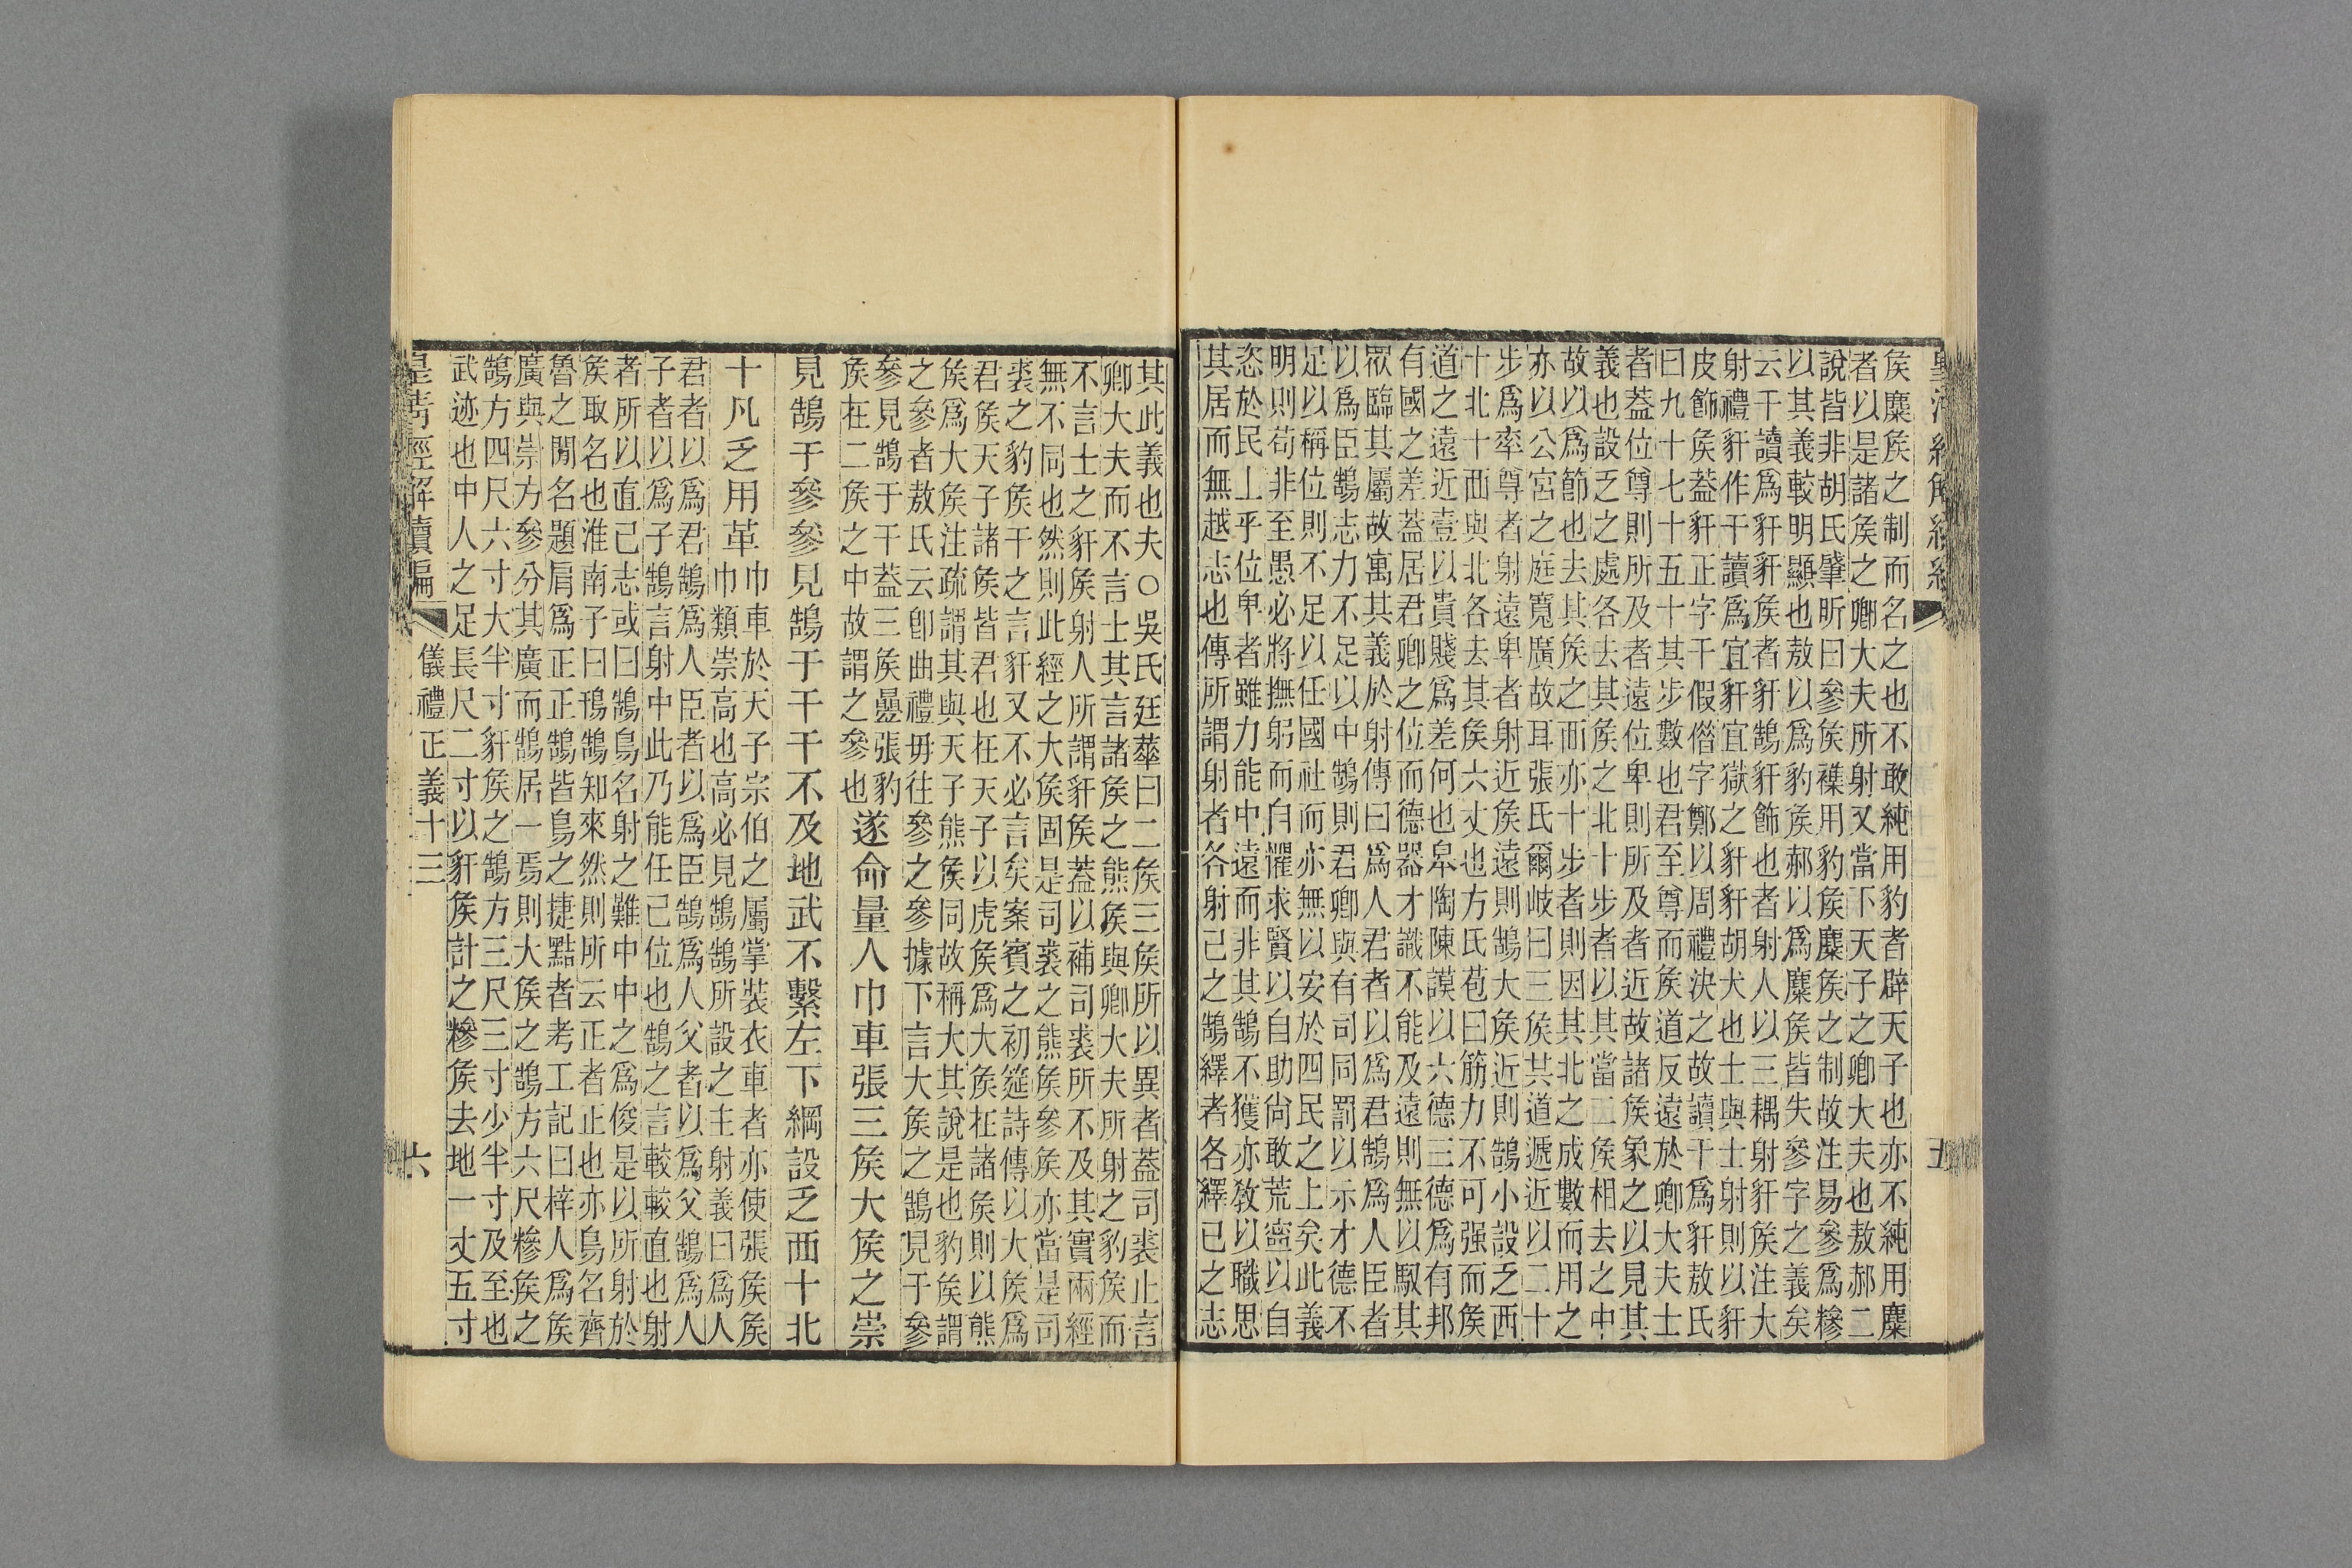 矦麋矦之制而名之也不敢純用豹者辟天子也亦不純用麋
者以是諸矦之卿大夫所射又當下天子之卿大夫也敖郝二
說皆非胡氏肇昕曰參矦襍用豹矦麋矦之制故注易參爲糝
以其義較明顯也敖以爲豹矦郝以爲麋矦皆失參字之義矣
云干讀爲豻豻矦者豻鵠豻飾也者射人以三耦射豻矦注大
射禮豻作干讀爲宜豻宜獄之豻豻胡犬也士與士射則以豻
皮飾矦葢豻正字干假借字鄭以周禮決之故讀干爲豻敖氏
曰九十七十五十其步數也君至尊而矦道反遠於卿大夫士
者葢位尊則所及者遠位卑則所及者近故諸矦象之以見其
義也設乏之處各去其矦之北十步者以其當二矦相去之中
故以爲節也去其矦之西亦十步者則因其北之成數而用之
亦以公宮之庭寬廣故耳張氏爾岐曰三矦其道遞近以二十
步爲率尊者射遠卑者射近矦遠則鵠大矦近則鵠小設乏西
十北十西與北各去其矦六丈也方氏苞曰筋力不可强而矦
道之遠近壹以貴賤爲差何也皋陶陳謨以六德三德爲有邦
有國之差葢居君卿之位而德器才識不能及遠則無以馭其
衆臨其屬故寓其義於射傳曰爲人君者以爲君鵠爲人臣者
以爲臣鵠志力不足以中鵠則君卿與有司同罰以示才德不
足以稱位則不足以任國社而亦無以安於四民之上矣此義
明則苟非至愚必將撫躬而自懼求賢以自助尙敢荒寧以自
恣於民上乎位卑者雖力能中遠而非其鵠不獲亦敎以職思
其居而無越志也傳所謂射者各射己之鵠繹者各繹已之志
其此義也夫○吳氏廷華曰二矦三矦所以異者葢司裘止言
卿大夫而不言士其言諸矦之熊矦與卿大夫所射之豹矦而
不言士之豻矦射人所謂豻矦葢以補司裘所不及其實兩經
無不同也然則此經之大矦固是司裘之熊矦參矦亦當是司
裘之豹矦干之言豻又不必言矣案賓之初筵詩傳以大矦爲
君矦天子諸矦皆君也在天子以虎矦爲大矦在諸矦則以熊
矦爲大矦注疏謂其與天子熊矦同故稱大其說是也豹矦謂
之參者敖氏云卽曲禮毋往參之參據下言大矦之鵠見于參
參見鵠于干葢三矦曡張豹
矦在二矦之中故謂之參也
遂命量人巾車張三矦大矦之崇
見鵠于參參見鵠于干干不及地武不繫左下綱設乏西十北
十凡乏用革
巾車於天子宗伯之屬掌裝衣車者亦使張矦矦
巾類崇高也高必見鵠鵠所設之主射義曰爲人
君者以爲君鵠爲人臣者以爲臣鵠爲人父者以爲父鵠爲人
子者以爲子鵠言射中此乃能任己位也鵠之言較較直也射
者所以直己志或曰鵠鳥名射之難中中之爲俊是以所射於
矦取名也淮南子曰鳱鵠知來然則所云正者正也亦鳥名齊
魯之閒名題肩爲正正鵠皆鳥之捷黠者考工記曰梓人爲矦
廣與崇方參分其廣而鵠居一焉則大矦之鵠方六尺糝矦之
鵠方四尺六寸大半寸豻矦之鵠方三尺三寸少半寸及至也
武迹也中人之足長尺二寸以豻矦計之糝矦去地一丈五寸
儀禮正義十三
六